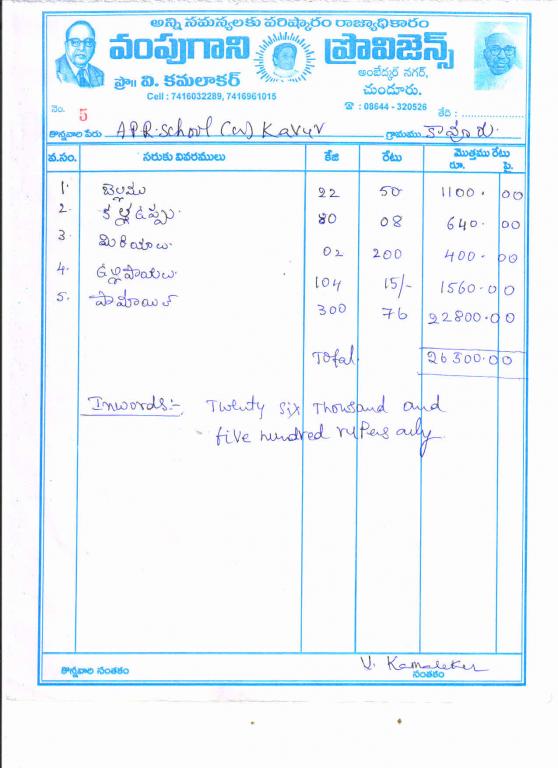 అన్ని సమస్యలకు పరిష్కారం రాజ్యాధికారం
వంపుగాని ప్రొవిజెన్స్
ప్రొ॥ వి. కమలాకర్
Cell : 7416032289, 7416961015
అంబేద్కర్ నగర్,
చుండూరు.
☎ : 08644 - 320526
నెం. 5 తేది :
కొన్నవారి పేరు APR.school (w) Kavur గ్రామము కావూరు.
వ.నం. సరుకు వివరములు కేజి రేటు మొత్తము రేటు
రూ. పై.
1. బెల్లము 22 50 1100. 00
2. కళ్ళ ఉప్పు. 80 08 640. 00
3. మిరియాలు. 02 200 400. 00
4. ఉల్లిపాయలు. 104 15/- 1560.00
5. పామాయిల్ 300 76 22800.00
Total. 26300.00
Inwords:- Twenty six Thousand and
five hundred rupees only.
కొన్నవారి సంతకం V. Kamalekar
సంతకం